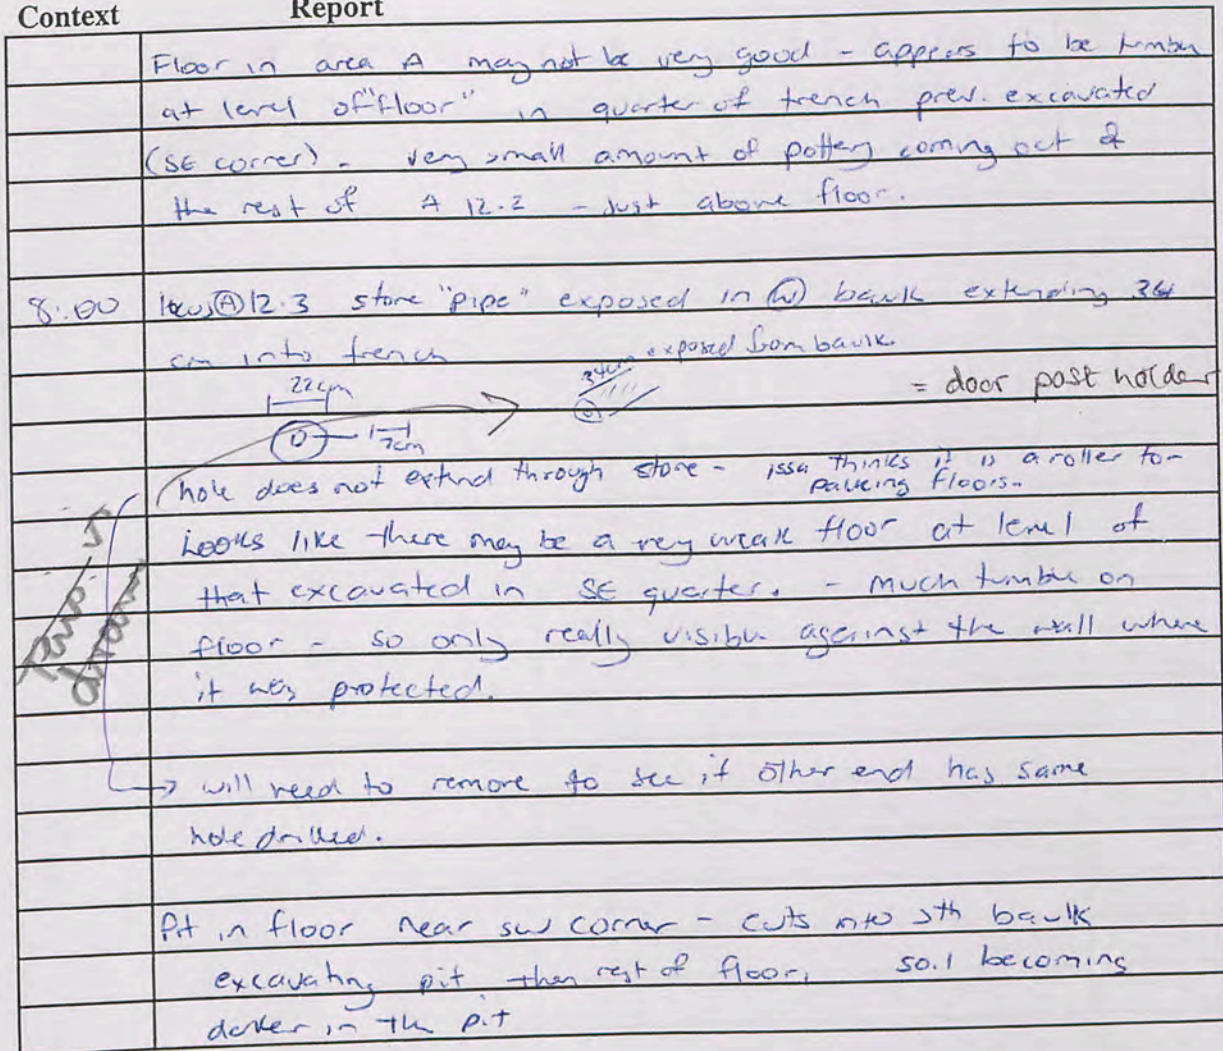 Context Report
Floor in area A may not be very good - appears to be tumble
at level of "floor" in quarter of trench prev. excavated
(SE corner). very small amount of pottery coming out of
the rest of A 12.2 - just above floor.
8:00 locus Ⓐ 12.3 stone "pipe" exposed in Ⓦ baulk extending 34
cm into trench
34cm exposed from baulk.
22cm
= door post holder
7cm
hole does not extend through stone - issa thinks it is a roller for
paveing floors.
Looks like there may be a very weak floor at level of
that excavated in SE quarter. - much tumble on
floor - so only really visible against the wall where
it was protected.
→ will need to remove to see if other end has same
hole drilled.
Pit in floor near sw corner - cuts into sth baulk
excavating pit then rest of floor, soil becoming
darker in the pit